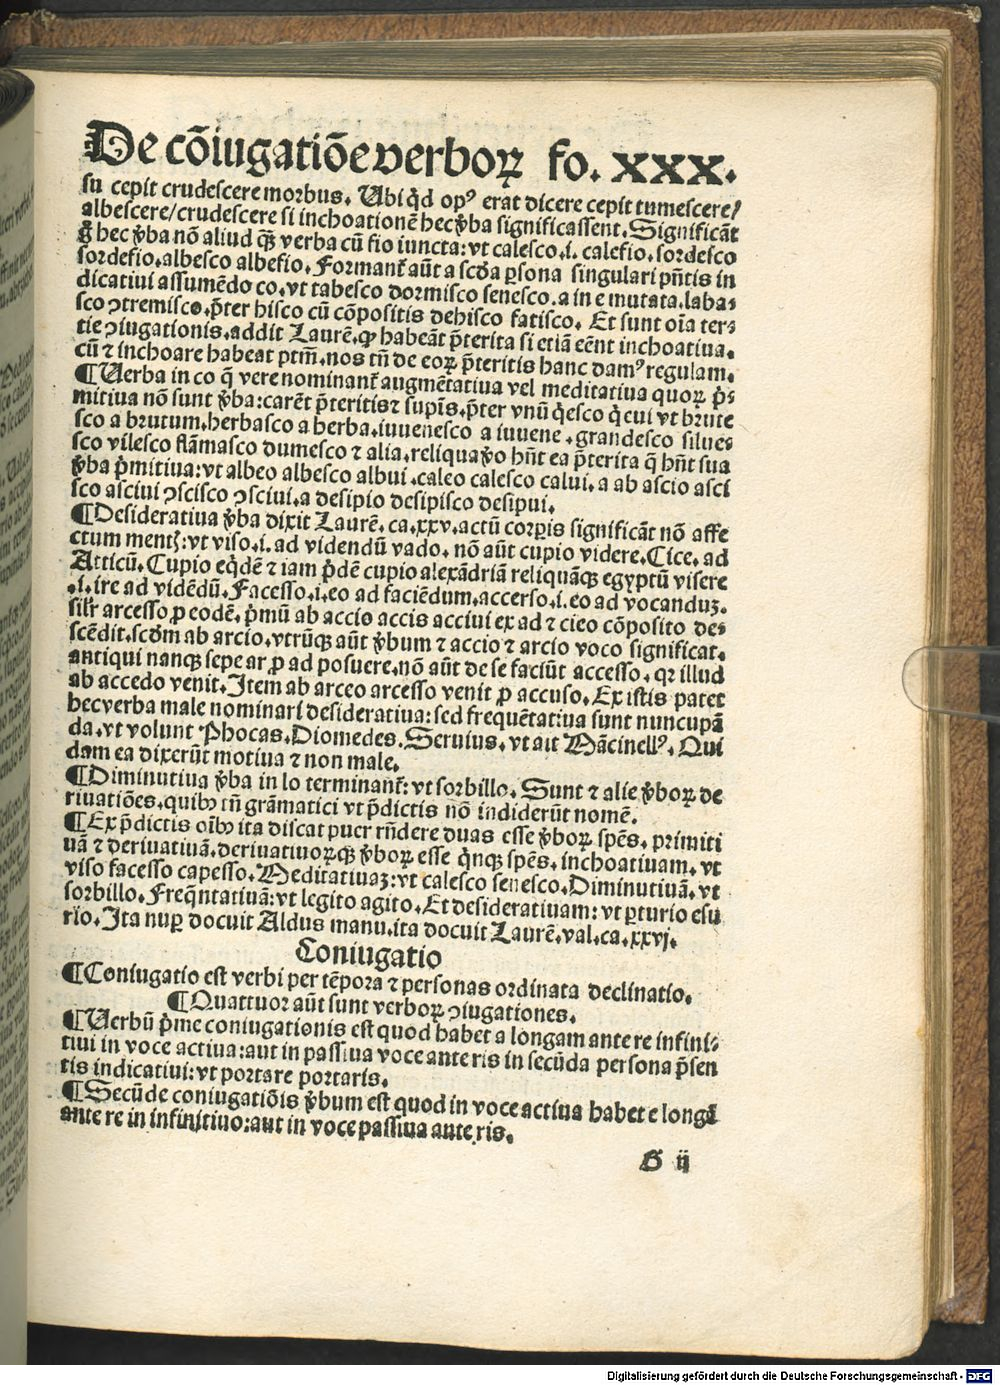 De cõiugatiõe verboꝝ fo. XXX.
su cepit crudescere morbus. Ubi qđ opꝰ erat dicere cepit tumescere/
albescere/crudescere si inchoationē hec ꝟba significassent. Significāt
g̊ hec ꝟba nõ aliud qꝫ verba cū fio iuncta: vt calesco.i. calefio. sordesco
sordefio. albesco albefio. Formant᷑ aūt a scđa ꝑsona singulari pñtis in
dicatiui assumēdo co. vt tabesco dormisco senesco. a in e mutata. laba⸗
sco ꝯtremisco. p̄ter hisco cū cõpositis dehisco fatisco. Et sunt oīa ter⸗
tie ꝯiugationis. addit Laurē. ꝙ habeāt p̄terita si etiā eēnt inchoatiua.
cū ⁊ inchoare habeat ptm̄. nos tñ de eoꝝ p̄teritis hanc damꝰ regulam.
¶Uerba in co q̄ vere nominant᷑ augmētatiua vel meditatiua quoꝝ p̄⸗
mitiua nõ sunt ꝟba: carēt p̄teritis ⁊ supīs. p̄ter vnū q̇esco q̇ cui vt brute
sco a brutum. herbasco a herba. iuuenesco a iuuene. grandesco silue⸗
sco vilesco flāmasco dumesco ⁊ alia. reliqua ꝟo hñt ea p̄terita q̄ hñt sua
ꝟba p̍mitiua: vt albeo albesco albui. caleo calesco calui. a ab ascio asci
sco asciui ꝯscisco ꝯsciui. a desipio desipisco desipui.
¶Desideratiua ꝟba dixit Laurē. ca. xxv. actū corꝑis significāt nõ affe
ctum mentꝭ: vt viso.i. ad videndū vado. nõ aūt cupio videre. Cice. ad
Atticū. Cupio eqđē ⁊ iam p̍dē cupio alexādriā reliquāqꝫ egyptū visere
.i. ire ad vidēdū. Facesso.i. eo ad faciēdum. accerso.i. eo ad vocanduꝫ.
silr̄ arcesso ꝓ eodē. p̍mū ab accio accis acciui ex ad ⁊ cieo cõposito de⸗
scēdit. scđm ab arcio. vtrūqꝫ aūt ꝟbum ⁊ accio ⁊ arcio voco significat.
antiqui nanqꝫ sepe ar ꝓ ad posuere. nõ aūt de se faciūt accesso. qꝛ illud
ab accedo venit. Item ab arceo arcesso venit ꝓ accuso. Ex istis patet
hec verba male nominari desideratiua: sed frequētatiua sunt nuncupā
da. vt volunt Phocas. Diomedes. Seruius. vt ait Mācinellꝰ. Qui
dam ea dixerūt motiua ⁊ non male.
¶Diminutiua ꝟba in lo terminant᷑: vt sorbillo. Sunt ⁊ alie ꝟboꝝ de
riuatiões. quibꝰ tñ grāmatici vt p̄dictis nõ indiderūt nomē.
¶Ex p̄dictis oībꝰ ita discat puer rñdere duas esse ꝟboꝝ spēs. primiti
uā ⁊ deriuatiuā. deriuatiuoꝝqꝫ ꝟboꝝ esse q̇nqꝫ spēs. inchoatiuam. vt
viso facesso capesso. Meditatiuaꝫ: vt calesco senesco. Diminutiuā. vt
sorbillo. Freq̄ntatiuā: vt legito agito. Et desideratiuam: vt ꝑturio esu
rio. Ita nuꝑ docuit Aldus manu. ita docuit Laurē. val. ca. xxvj.
Coniugatio
¶Coniugatio est verbi per tēpora ⁊ personas ordinata declinatio.
¶Quattuor aūt sunt verboꝝ ꝯiugationes.
¶Uerbū p̍me coniugationis est quod habet a longam ante re infini⸗
tiui in voce actiua: aut in passiua voce ante ris in secūda persona p̄sen
tis indicatiui: vt portare portaris.
¶Secūde coniugatiõis ꝟbum est quod in voce actiua habet e longā
ante re in infinitiuo: aut in voce passiua ante ris.
G ij
Digitalisierung gefördert durch die Deutsche Forschungsgemeinschaft - DFG